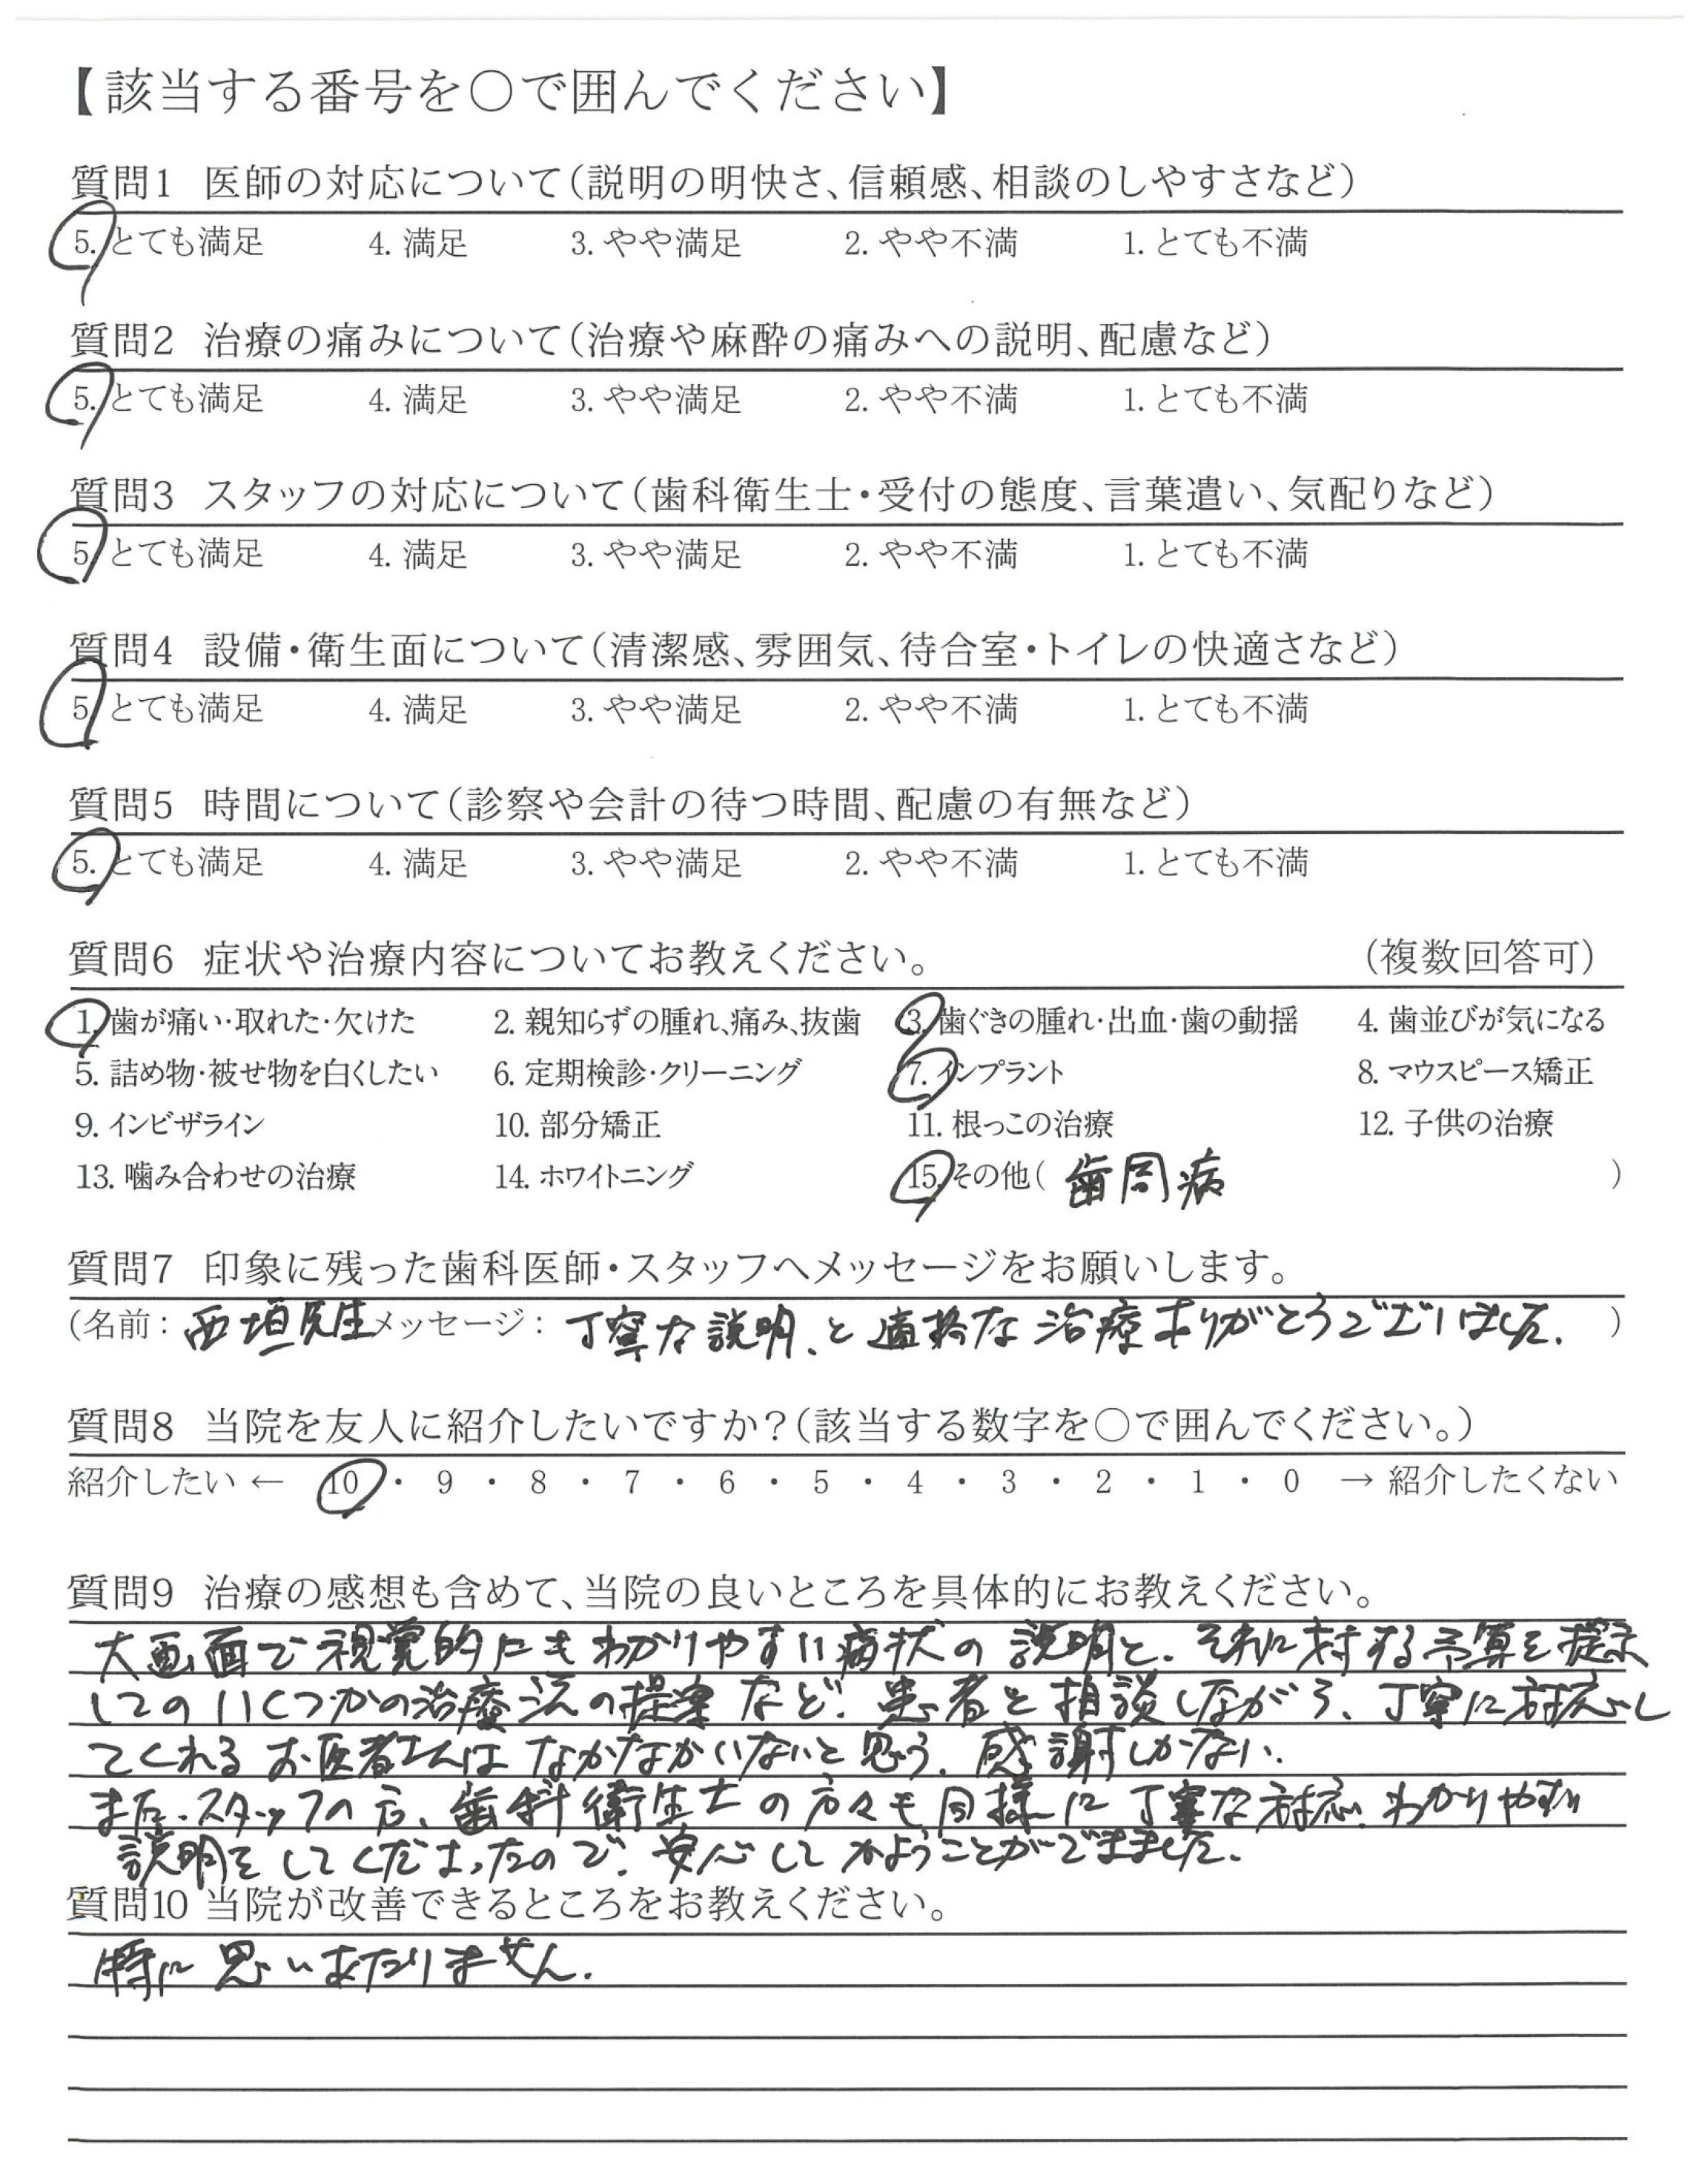 【該当する番号を〇で囲んでください】
質問1 医師の対応について（説明の明快さ、信頼感、相談のしやすさなど）
5. とても満足 4. 満足 3. やや満足 2. やや不満 1. とても不満
質問2 治療の痛みについて（治療や麻酔の痛みへの説明、配慮など）
5. とても満足 4. 満足 3. やや満足 2. やや不満 1. とても不満
質問3 スタッフの対応について（歯科衛生士・受付の態度、言葉遣い、気配りなど）
5. とても満足 4. 満足 3. やや満足 2. やや不満 1. とても不満
質問4 設備・衛生面について（清潔感、雰囲気、待合室・トイレの快適さなど）
5. とても満足 4. 満足 3. やや満足 2. やや不満 1. とても不満
質問5 時間について（診察や会計の待つ時間、配慮の有無など）
5. とても満足 4. 満足 3. やや満足 2. やや不満 1. とても不満
質問6 症状や治療内容についてお教えください。 （複数回答可）
1. 歯が痛い・取れた・欠けた 2. 親知らずの腫れ、痛み、抜歯 3. 歯ぐきの腫れ・出血・歯の動揺 4. 歯並びが気になる
5. 詰め物・被せ物を白くしたい 6. 定期検診・クリーニング 7. インプラント 8. マウスピース矯正
9. インビザライン 10. 部分矯正 11. 根っこの治療 12. 子供の治療
13. 噛み合わせの治療 14. ホワイトニング 15. その他（ 歯周病 ）
質問7 印象に残った歯科医師・スタッフへメッセージをお願いします。
（名前： 西垣先生 メッセージ： 丁寧な説明、と適格な治療ありがとうございました. ）
質問8 当院を友人に紹介したいですか？（該当する数字を〇で囲んでください。）
紹介したい ← 10 ・ 9 ・ 8 ・ 7 ・ 6 ・ 5 ・ 4 ・ 3 ・ 2 ・ 1 ・ 0 → 紹介したくない
質問9 治療の感想も含めて、当院の良いところを具体的にお教えください。
大画面で視覚的にもわかりやすい病状の説明と、それに対する予算を提示
してのいくつかの治療法の提案など、患者と相談しながら、丁寧に対応し
てくれるお医者さんはなかなかいないと思う. 感謝しかない.
また、スタッフの方、歯科衛生士の方々も同様に丁寧な対応、わかりやすい
説明をしてくださったので、安心してかようことができました.
質問10 当院が改善できるところをお教えください。
特に思いあたりません.